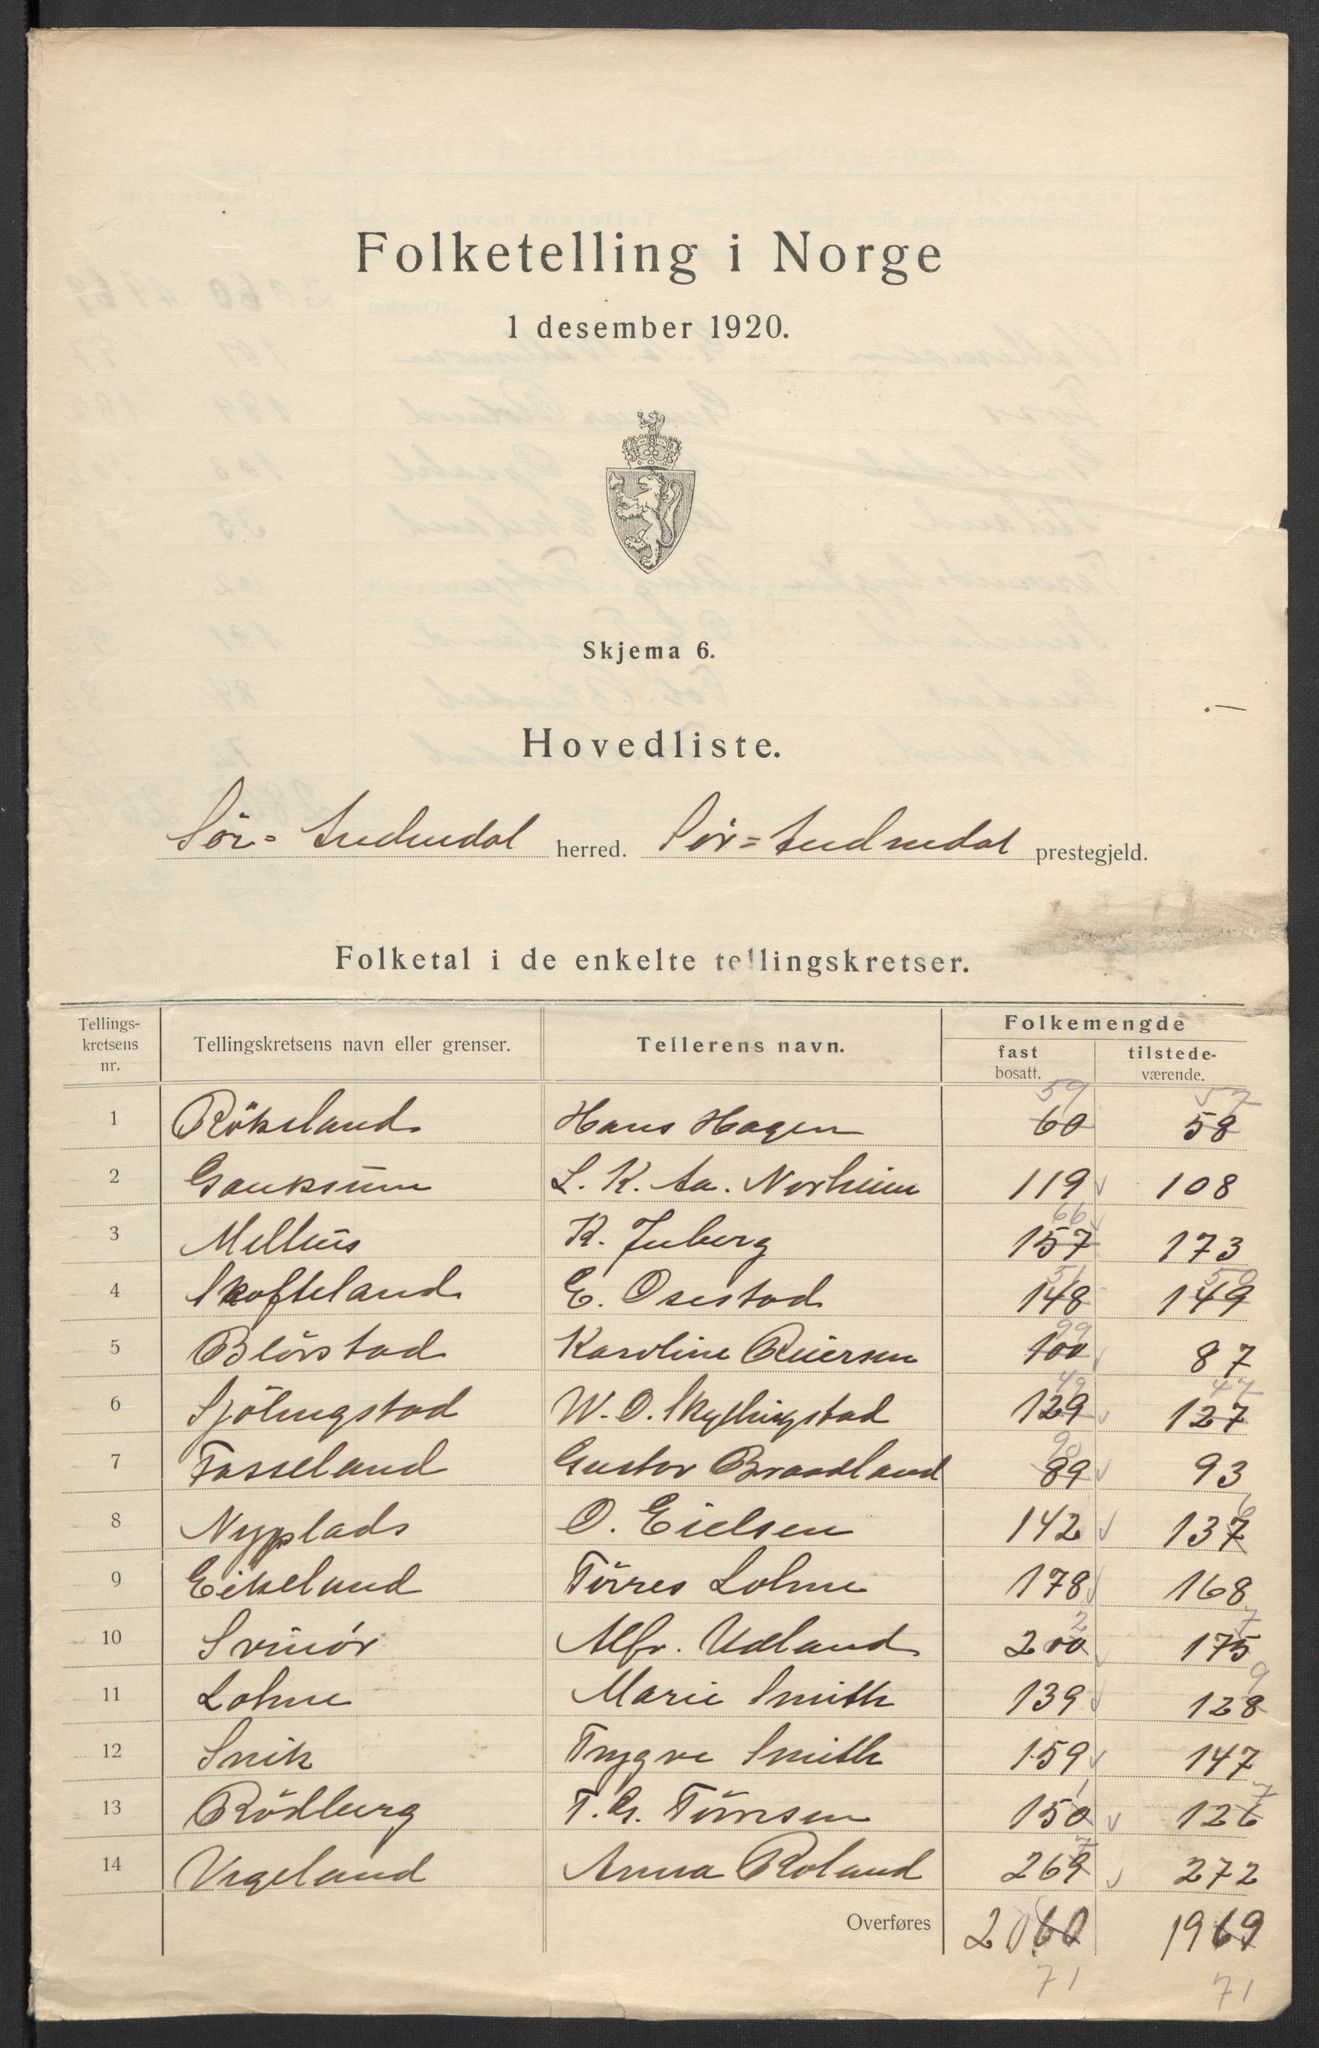 Folketelling i Norge
1 desember 1920.
Skjema 6.
Hovedliste.
Sör=Audnedal herred. Sör=Audnedal prestegjeld.
Folketal i de enkelte tellingskretser.
Tellings-kretsens nr. Tellingskretsens navn eller grenser. Tellerens navn. Folkemengde
fast bosatt. tilstede-værende.
59 57
1 Rökeland Hans Hagen 60 58
2 Gauksum L. K. Aa. Norheim 119 108
66
3 Mellus K. Juberg 157 173
51 50
4 Skofteland E. Osestad 148 149
99
5 Blörstad Karoline Reiersen 100 87
49 47
6 Sjölingstad W. O. Skyllingstad 129 127
90
7 Fasseland Gustav Braadland 89 93
6
8 Nyplads O. Eielsen 142 137
9 Eikeland Törres Lohne 178 168
2 7
10 Svinör Alfr. Udland 200 175
9
11 Lohne Marie Smith 139 128
12 Snik Trygve Smith 159 147
1 7
13 Rödberg T. G. Törresen 150 126
7
14 Vigeland Anna Roland 269 272
Overføres 2060 1969
71 71